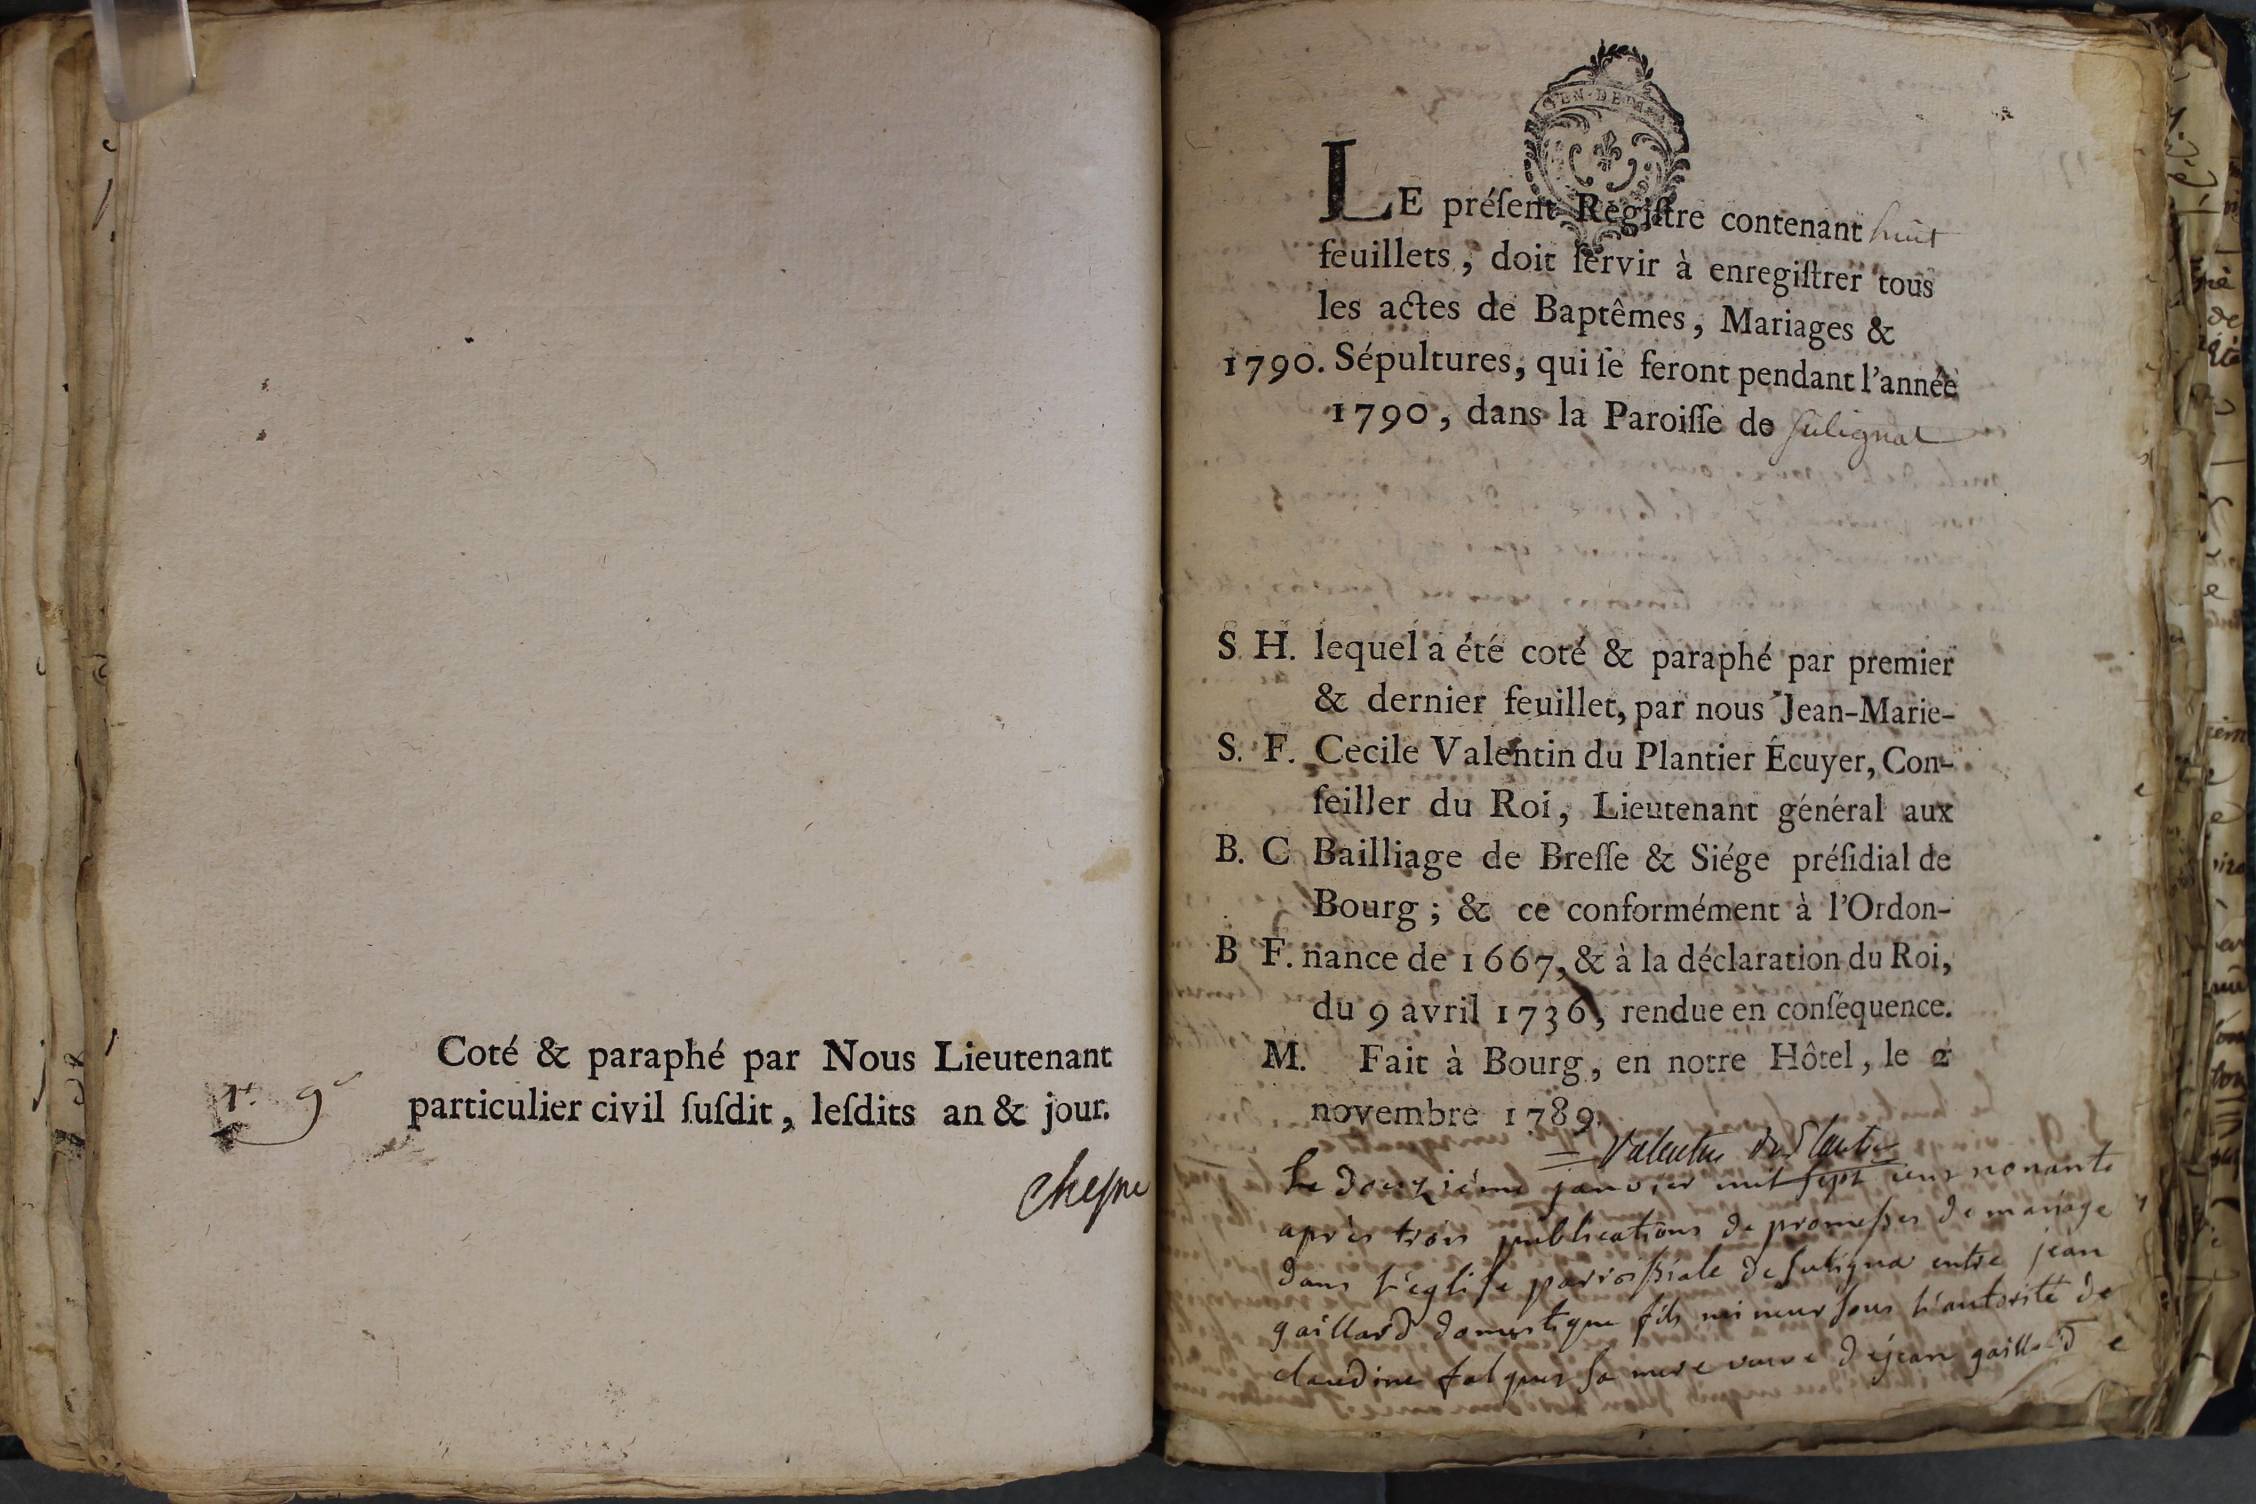 Coté & paraphé par Nous Lieutenant
particulier civil ſuſdit, leſdits an & jour.
GEN·DE
LE préſent Regiſtre contenant huit
feuillets, doit ſervir à enregiſtrer tous
les actes de Baptêmes, Mariages &
1790. Sépultures, qui ſe feront pendant l'année
1790, dans la Paroiſſe de Sulignat
S. H. lequel a été coté & paraphé par premier
& dernier feuillet, par nous Jean-Marie-
S. F. Cecile Valentin du Plantier Écuyer, Con-
ſeiller du Roi, Lieutenant général aux
B. C Bailliage de Breſſe & Siége préſidial de
Bourg; & ce conformément à l'Ordon-
B F. nance de 1667, & à la déclaration du Roi,
du 9 avril 1736, rendue en conſéquence.
M. Fait à Bourg, en notre Hôtel, le 2
novembre 1789.
Valentin du Plantier
Le douzième janvier mil sept cens nonante
après trois publications de promesses de mariage
dans l'eglise parroissiale de suligna entre jean
gaillard domestique fils mineur sous l'autorité de
claudine falques sa mere veuve de jean gaillard e